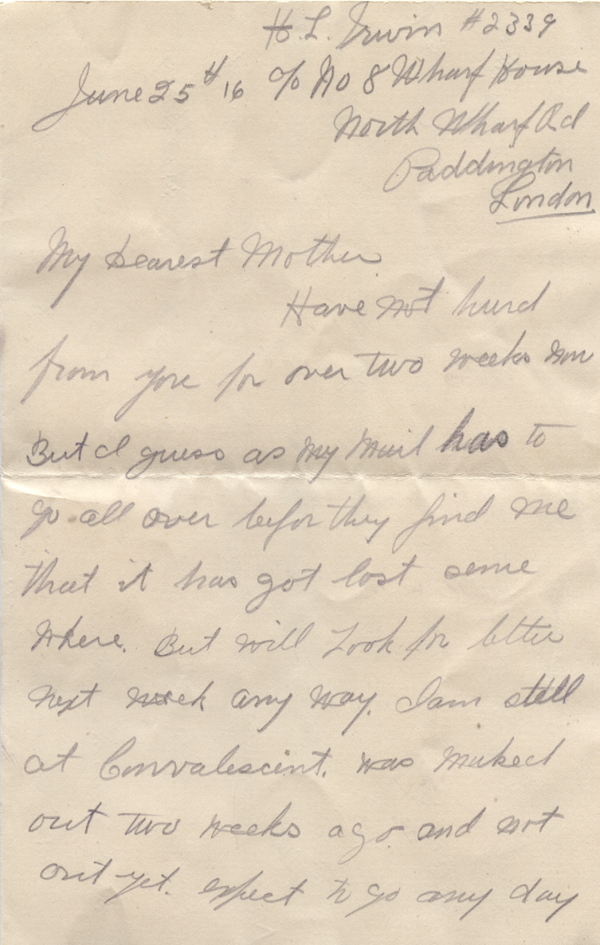 H. L. Irwin #2339
June 25th 16 c/o No 8 Wharf House
North Wharf Rd
Paddington
London
My Dearest Mother
Have not hurd
from you for over two weeks now
But I guess as my mail has to
go all over befor they find me
that it has got lost some
where. But will look for letter
next week any way. I am still
at Convalescent. was marked
out two weeks ago and not
out yet. expect to go any day